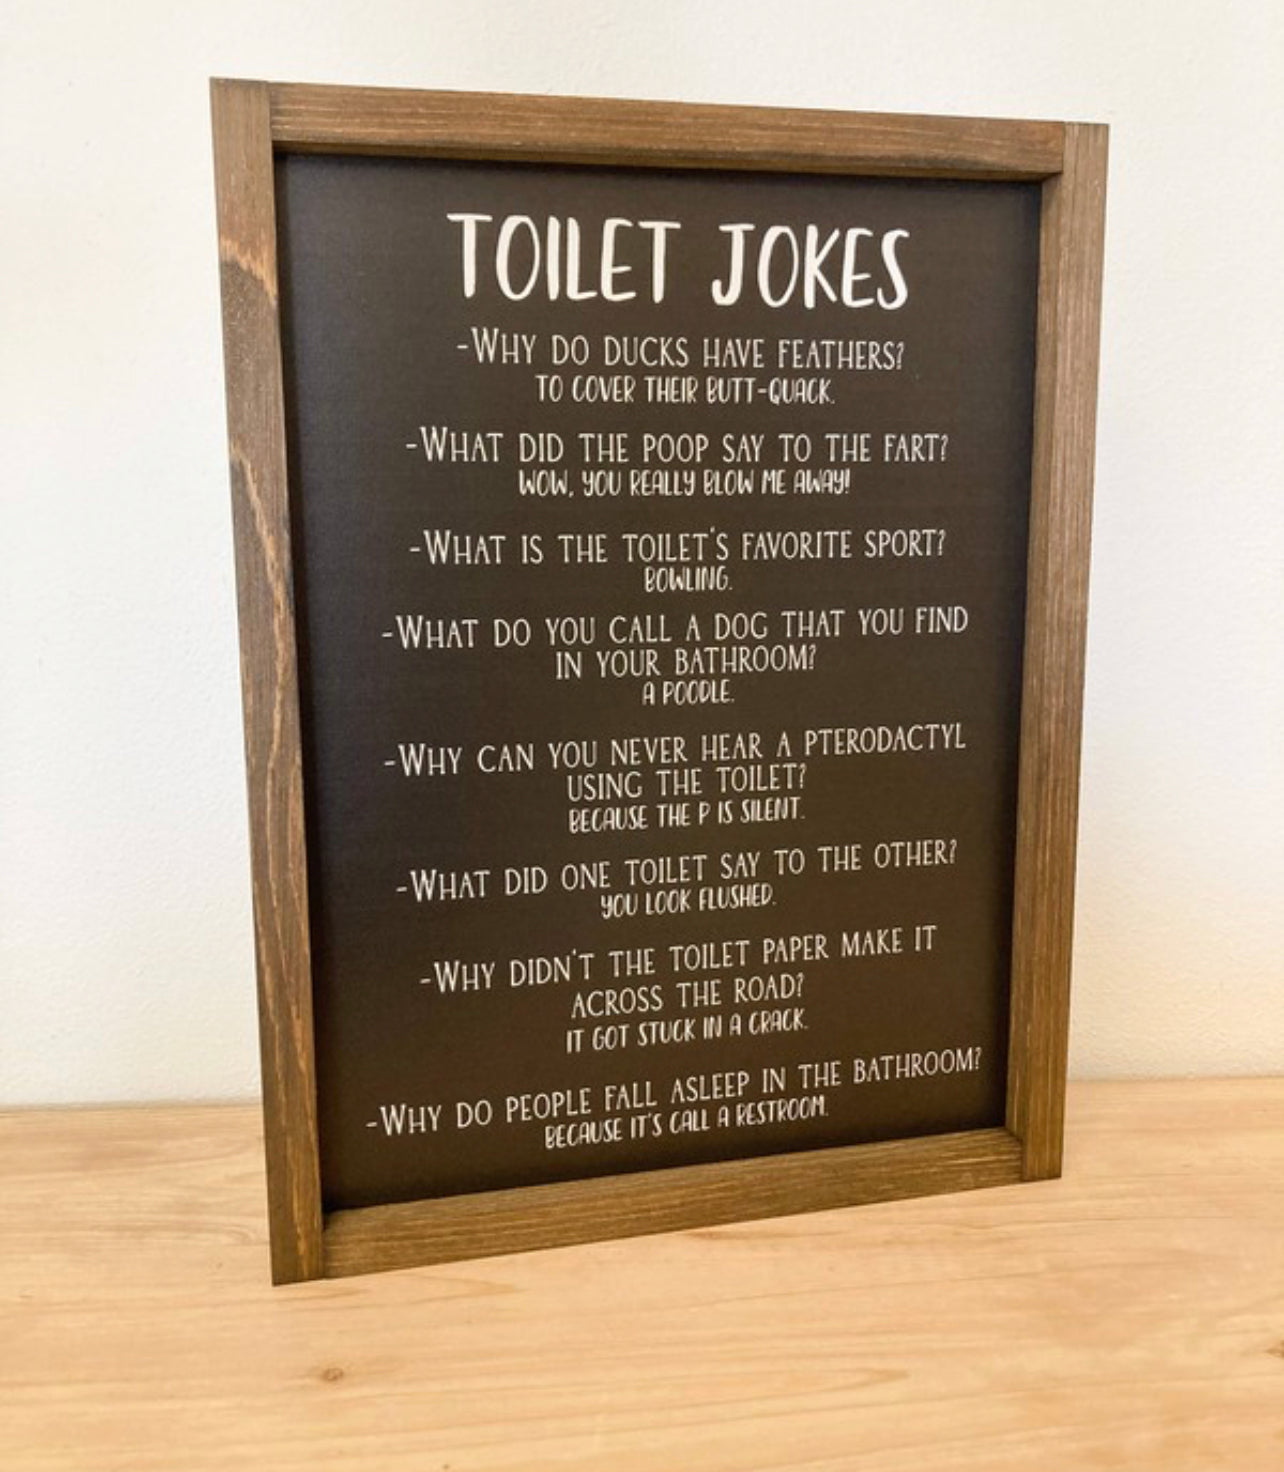 TOILET JOKES
-WHY DO DUCKS HAVE FEATHERS?
TO COVER THEIR BUTT-QUACK.
-WHAT DID THE POOP SAY TO THE FART?
WOW, YOU REALLY BLOW ME AWAY!
-WHAT IS THE TOILET'S FAVORITE SPORT?
BOWLING.
-WHAT DO YOU CALL A DOG THAT YOU FIND
IN YOUR BATHROOM?
A POODLE.
-WHY CAN YOU NEVER HEAR A PTERODACTYL
USING THE TOILET?
BECAUSE THE P IS SILENT.
-WHAT DID ONE TOILET SAY TO THE OTHER?
YOU LOOK FLUSHED.
-WHY DIDN'T THE TOILET PAPER MAKE IT
ACROSS THE ROAD?
IT GOT STUCK IN A CRACK.
-WHY DO PEOPLE FALL ASLEEP IN THE BATHROOM?
BECAUSE IT'S CALL A RESTROOM.